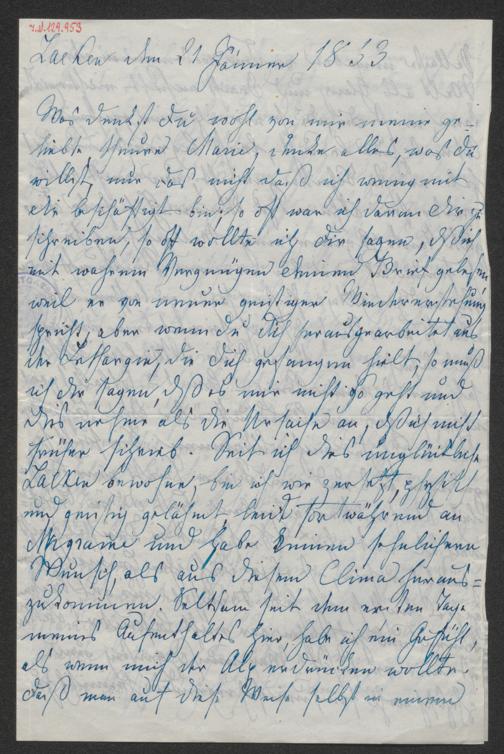 I.N. 129.953
Lacken den 21 Jänner 1853
Was denkst Du wohl von mir meine ge-
liebte theure Marie, denke alles, was Du
willst, nur das nicht daß ich wenig mit
Dir beschäftigt bin; so oft war ich daran Dir zu
schreiben, so oft wollte ich Dir sagen, daß ich
mit wahrem Vergnügen Deinen Brief gelesen
weil er von neuer geistiger Wiedererstehung
spricht, aber wenn Du Dich herausgearbeitet aus
der Lethargie, die Dich gefangen hielt, so muß
ich Dir sagen, daß es mir nicht so geht und
dies nehme als die Ursache an, daß ich nicht
früher schrieb. Seit ich dies unglückliche
Lacken bewohne, bin ich wie zersetzt, physisch
und geistig gelähmt leide fortwährend an
Migraine und habe keinen sehnlichern
Wunsch, als aus diesem Clima heraus=
zukommen. Seltsam seit dem ersten Tage
meines Aufenthaltes hier, habe ich ein Gefühl,
als wenn mich der Alp erdrücken wollte.
Daß man auf diese Weise selbst in einem